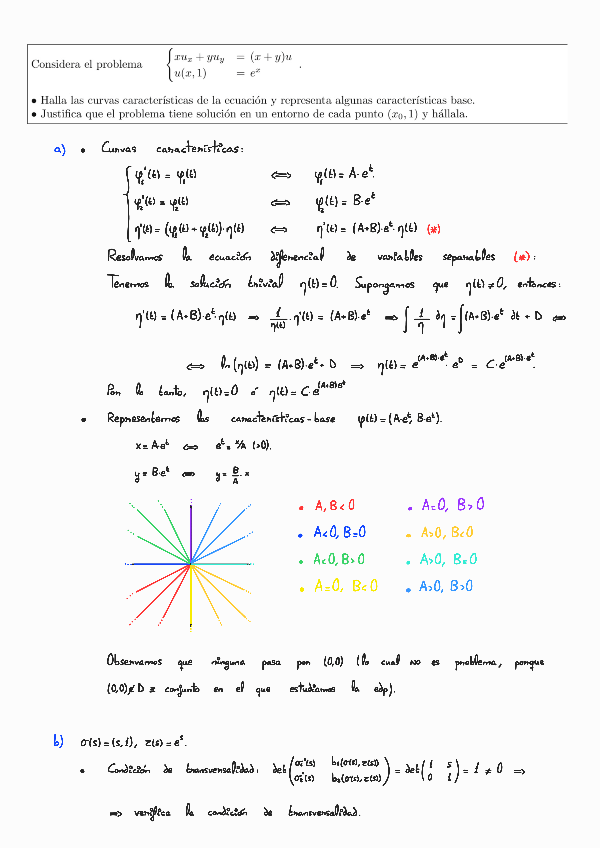 Considera el problema { xu_x + yu_y = (x + y)u
u(x, 1) = e^x .
• Halla las curvas características de la ecuación y representa algunas características base.
• Justifica que el problema tiene solución en un entorno de cada punto (x_0, 1) y hállala.
a) • Curvas características:
φ_1'(t) = φ_1(t) ⟺ φ_1(t) = A·e^t.
φ_2'(t) = φ_2(t) ⟺ φ_2(t) = B·e^t
η'(t) = (φ_1(t) + φ_2(t))·η(t) ⟺ η'(t) = (A+B)·e^t·η(t) (*)
Resolvamos la ecuación diferencial de variables separables (*):
Tenemos la solución trivial η(t)=0. Supongamos que η(t)≠0, entonces:
η'(t) = (A+B)·e^t·η(t) ⟹ 1/η(t)·η'(t) = (A+B)·e^t ⟹ ∫ 1/η dη = ∫(A+B)·e^t dt + D ⟺
⟺ ln(η(t)) = (A+B)·e^t + D ⟹ η(t) = e^{(A+B)·e^t}·e^D = C·e^{(A+B)·e^t}.
Por lo tanto, η(t)=0 ó η(t)=C·e^{(A+B)e^t}
• Representemos las características-base φ(t)=(A·e^t, B·e^t).
x = A·e^t ⟺ e^t = x/A (>0).
y = B·e^t ⟺ y = B/A · x
• A, B < 0 • A=0, B>0
• A<0, B=0 • A>0, B<0
• A<0, B>0 • A>0, B=0
• A=0, B<0 • A>0, B>0
Observamos que ninguna pasa por (0,0) (lo cual NO es problema, porque
(0,0)∉D ≡ conjunto en el que estudiamos la edp).
b) σ(s)=(s,1), z(s)=e^s.
• Condición de transversalidad: det(σ_1'(s) b_1(σ(s),z(s)) σ_2'(s) b_2(σ(s),z(s))) = det(1 s 0 1) = 1 ≠ 0 ⟹
⟹ verifica la condición de transversalidad.